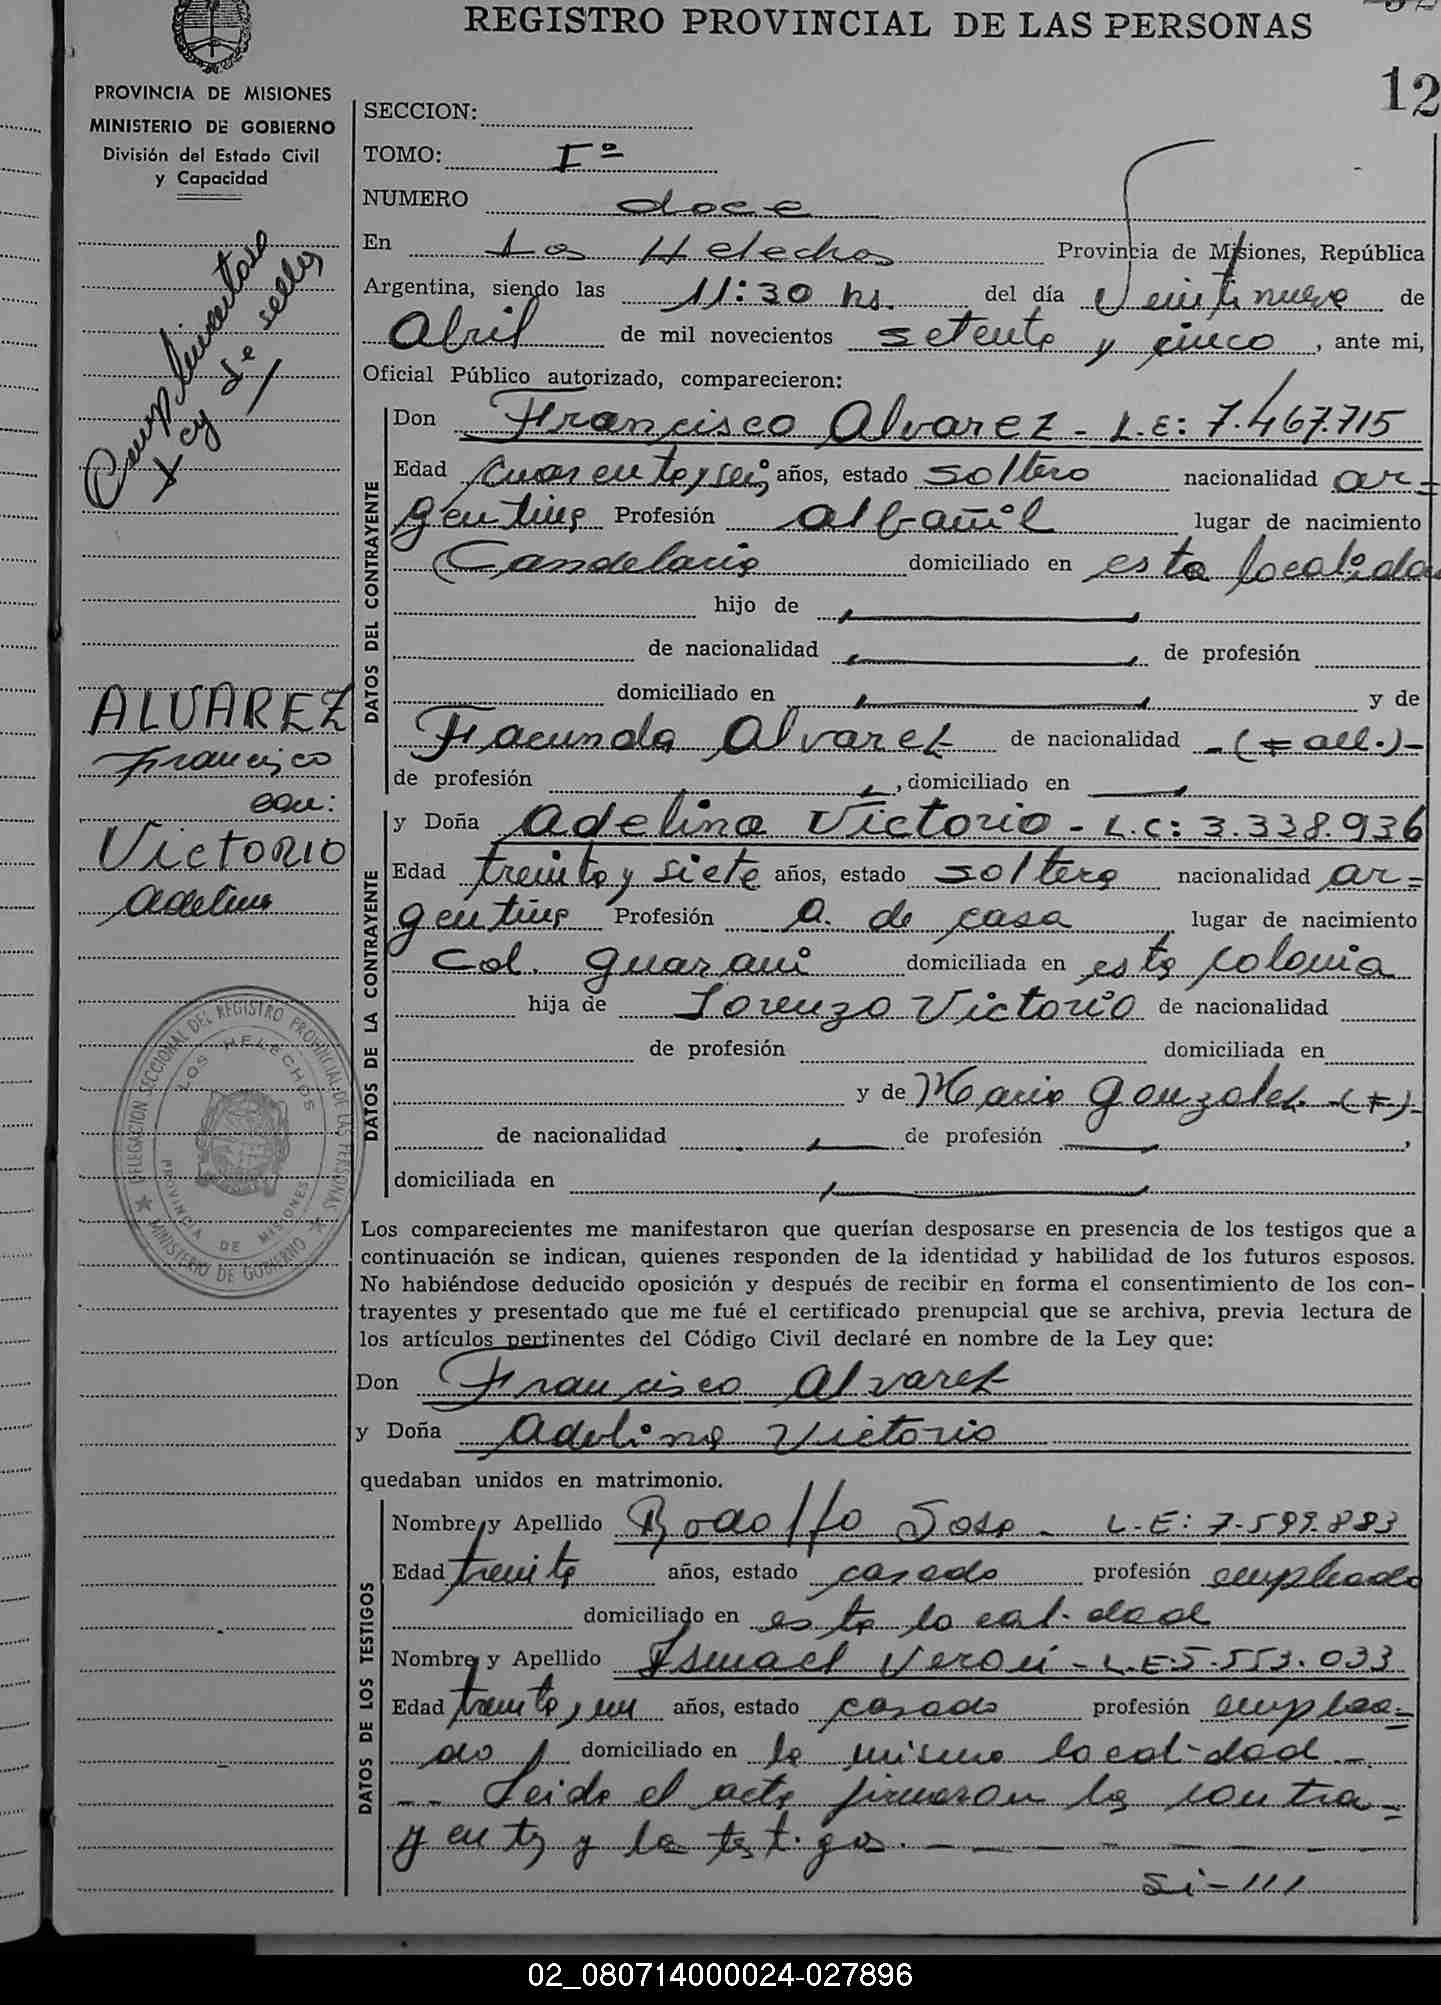 REGISTRO PROVINCIAL DE LAS PERSONAS
12
PROVINCIA DE MISIONES
MINISTERIO DE GOBIERNO
División del Estado Civil
y Capacidad
SECCION:
TOMO: Iº
NUMERO doce
En Los Helechos Provincia de Misiones, República
Argentina, siendo las 11:30 hs. del día Veintinueve de
Abril de mil novecientos setenta y cinco, ante mi,
Oficial Público autorizado, comparecieron:
DATOS DEL CONTRAYENTE
Don Francisco Alvarez - L.E: 7.467.715
Edad cuarenta y seis años, estado soltero nacionalidad ar=
gentina Profesión albañil lugar de nacimiento
Candelaria domiciliado en esta localidad
hijo de
de nacionalidad de profesión
domiciliado en y de
Facunda Alvarez de nacionalidad
de profesión , domiciliado en
ALVAREZ
Francisco
con:
VICTORIO
Adelina
DATOS DE LA CONTRAYENTE
y Doña Adelina Victorio - L.C: 3.338.936
Edad treinta y siete años, estado soltera nacionalidad ar=
gentina Profesión a. de casa lugar de nacimiento
Col. Guaraní domiciliada en esta colonia
hija de Lorenzo Victorio de nacionalidad
de profesión domiciliada en
y de Maria Gonzalez -(+)-
de nacionalidad de profesión ,
domiciliada en
DELEGACION SECCIONAL DEL REGISTRO PROVINCIAL DE LAS PERSONAS
LOS HELECHOS
PROVINCIA DE MISIONES
★ MINISTERIO DE GOBIERNO ★
Los comparecientes me manifestaron que querían desposarse en presencia de los testigos que a
continuación se indican, quienes responden de la identidad y habilidad de los futuros esposos.
No habiéndose deducido oposición y después de recibir en forma el consentimiento de los con-
trayentes y presentado que me fué el certificado prenupcial que se archiva, previa lectura de
los artículos pertinentes del Código Civil declaré en nombre de la Ley que:
Don Francisco Alvarez
y Doña Adelina Victorio
quedaban unidos en matrimonio.
DATOS DE LOS TESTIGOS
Nombre y Apellido Rodolfo Sosa - L.E: 7.599.883
Edad treinta años, estado casado profesión empleado
domiciliado en esta localidad
Nombre y Apellido Ismael Verón - L.E. 5.553.033
Edad treinta y un años, estado casado profesión emplea=
do domiciliado en la misma localidad --
-- Leida el acta firmaron los contra=
yentes y los testigos.
02_080714000024-027896